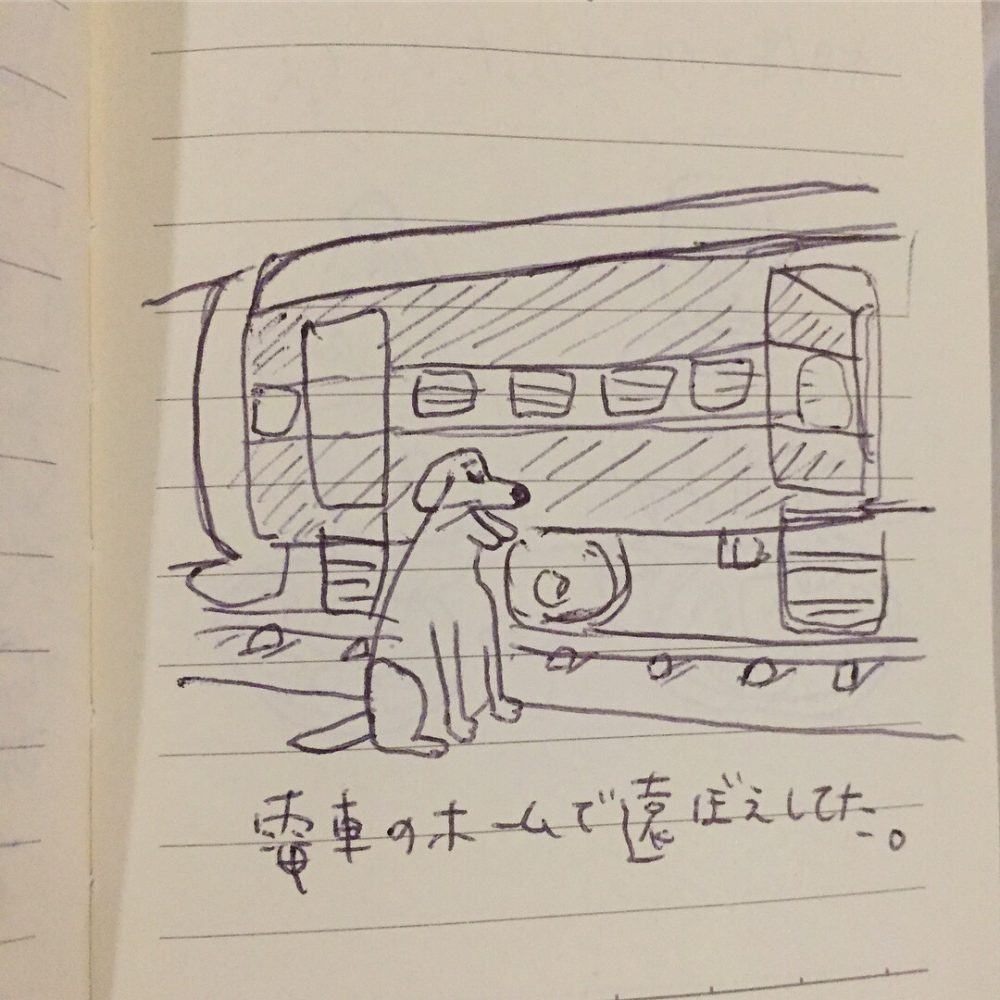 電車のホームで遠ぼえしてた。